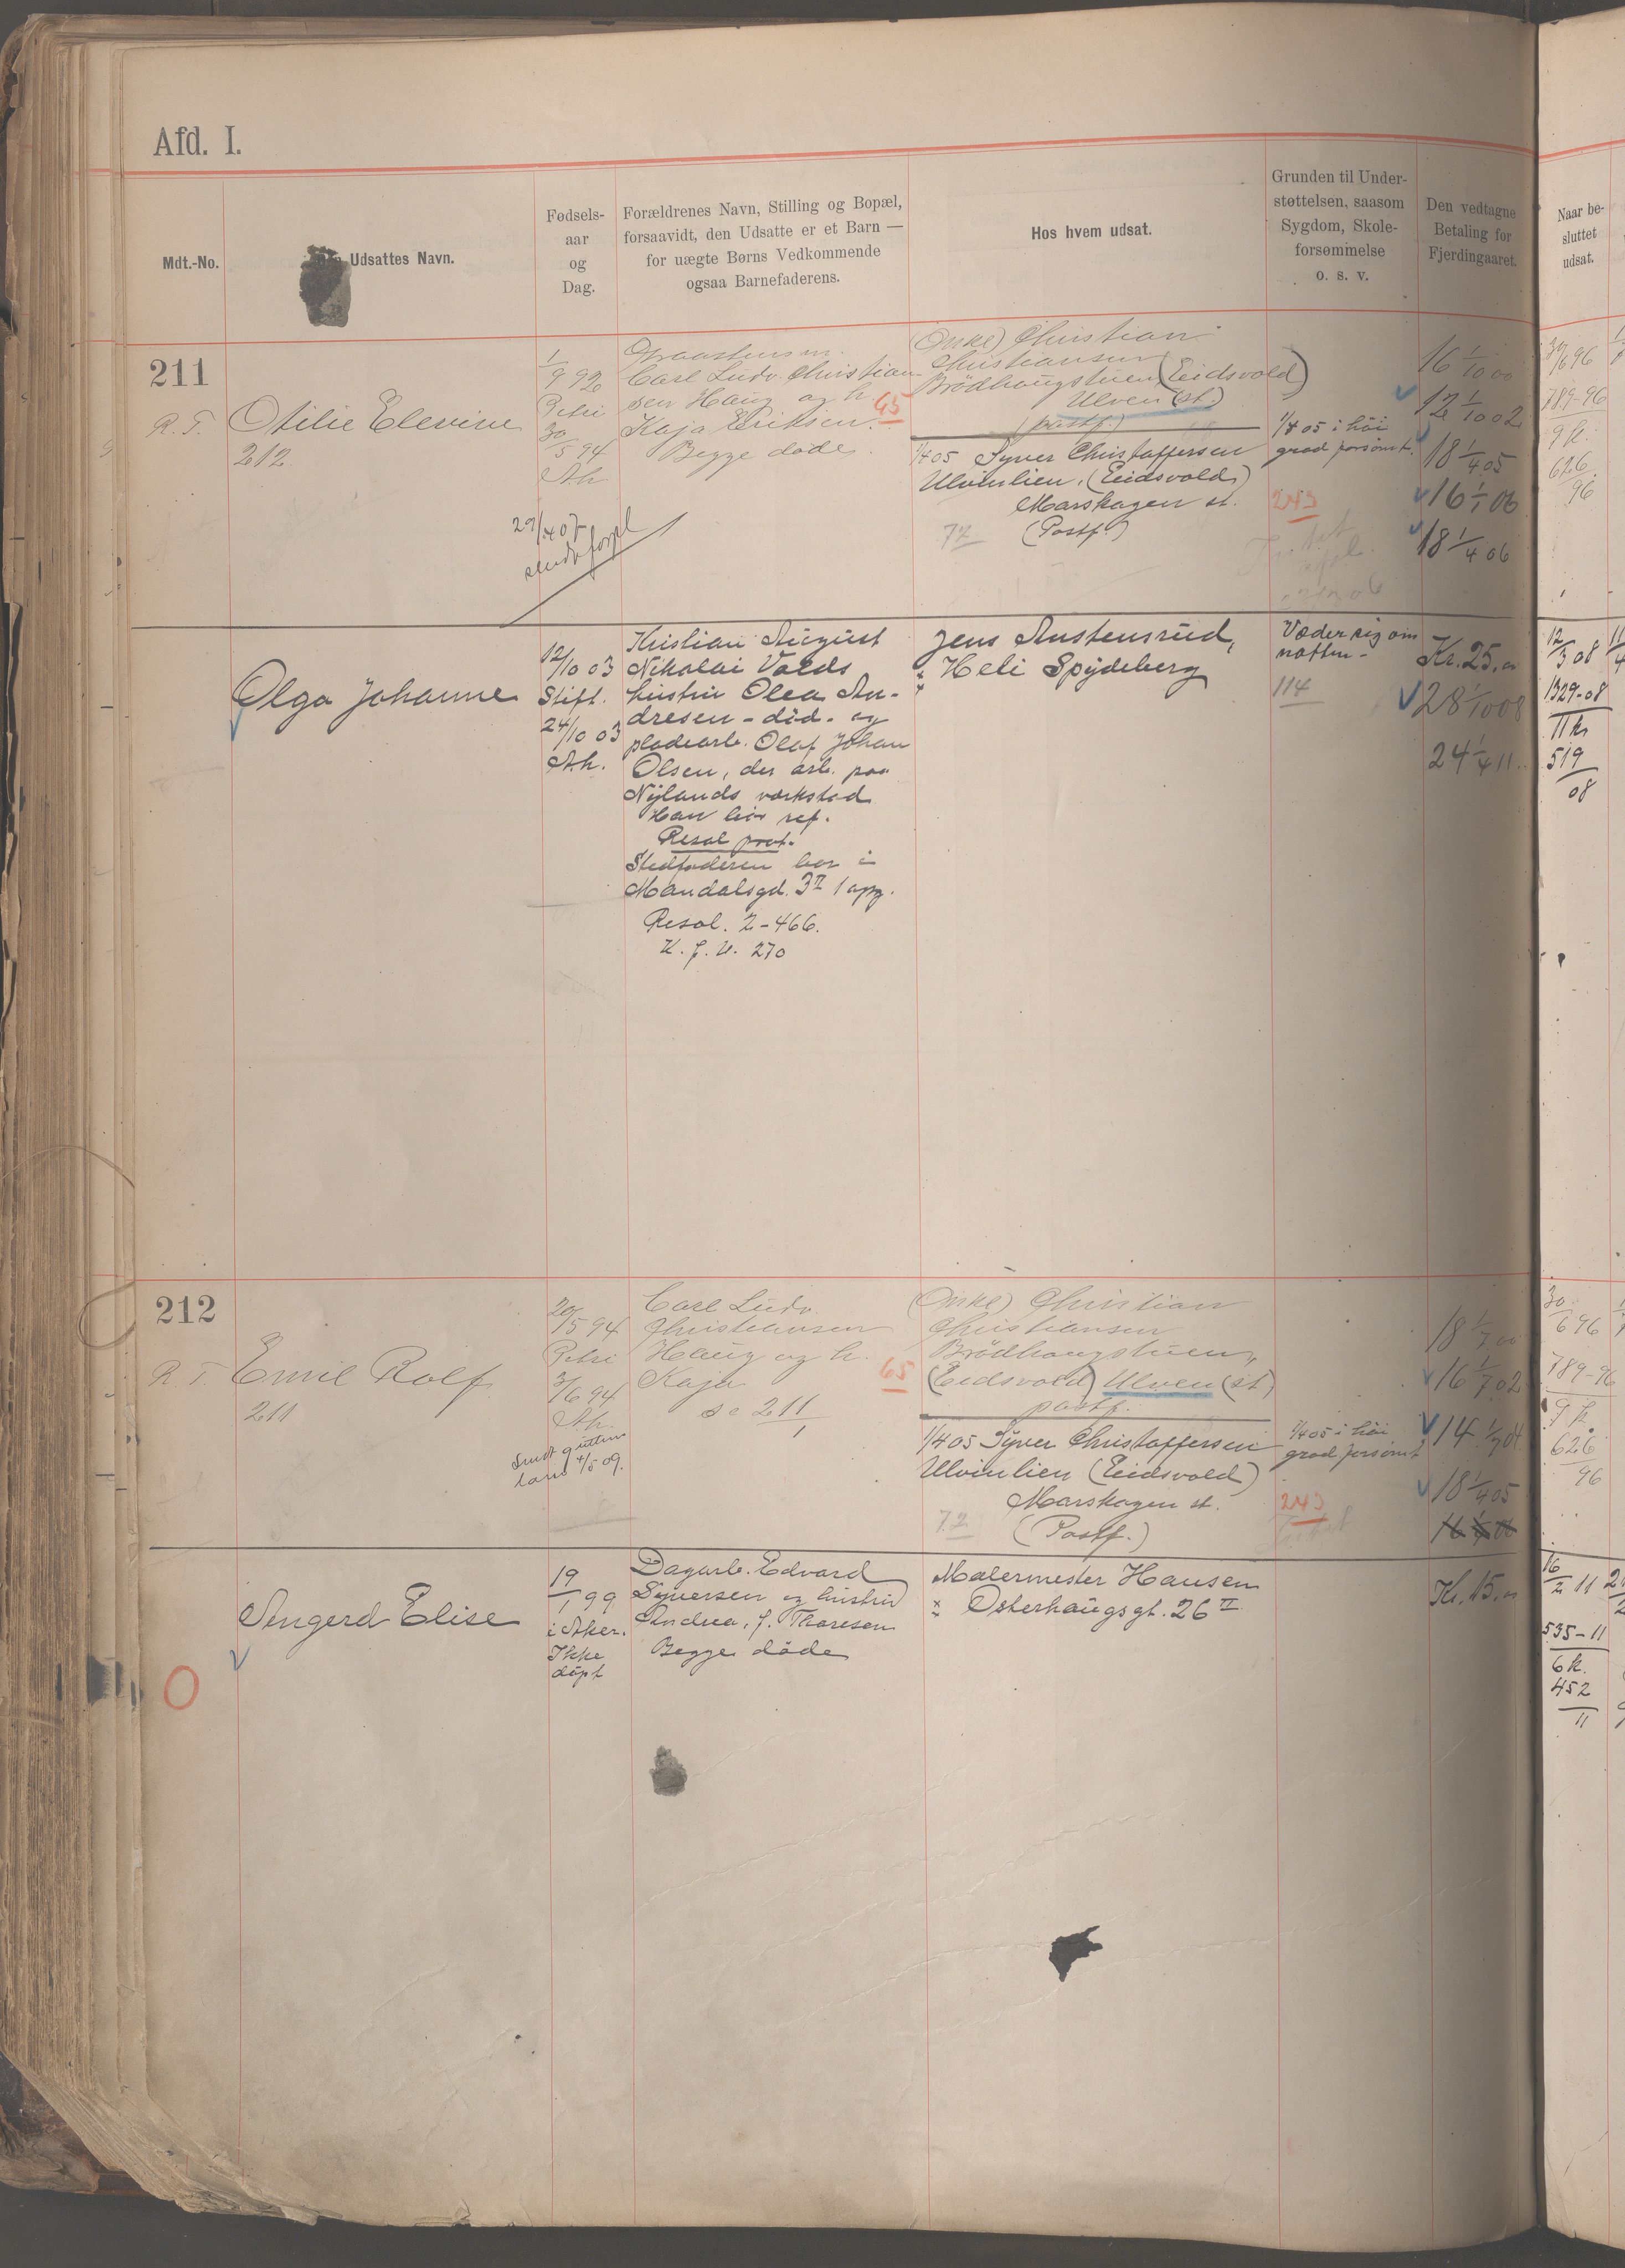 Afd. I.
Mdt.-No.
Udsattes Navn.
Fødsels-
aar
og
Dag.
Forældrenes Navn, Stilling og Bopæl,
forsaavidt, den Udsatte er et Barn —
for uægte Børns Vedkommende
ogsaa Barnefaderens.
Hos hvem udsat.
Grunden til Under-
støttelsen, saasom
Sygdom, Skole-
forsømmelse
o. s. v.
Den vedtagne
Betaling for
Fjerdingaaret.
Naar be-
sluttet
udsat.
211
R. T.
Otilie Elevine
212.
1/9 92
Petri
30/5 94
Ah
29/4 07
Carl Ludv. Christian
sen Haug og h.
Kaja Eriksen.
Begge døde.
65
(Onkel) Christian
Christiansen
Brödhaugstuen (Eidsvold)
Ulven (st.)
(postf.)
1/4 05 Syver Christoffersen
Ulvinlien, (Eidsvold)
Morskogen st.
(Postf.)
72
1/4 05 i høi
grad forsømt.
243
16 1/10 00
12 1/10 02
18 1/4 05
16 1/1 06
18 1/4 06
30/6 96
789-96
9 k.
626
96
Olga Johanne
12/10 03
Stift.
24/10 03
Ah.
Kristian August
Nikolai Volds
hustru Olea An-
dresen - död. og
pladearb. Olaf Johan
Olsen, der arb. paa
Nylands værksted
Han bör ref.
Resol prot.
Stedfaderen bor i
Mandalsgd. 3 II 1 opg.
Resol. 2-466.
K. f. U. 270
Jens Austensrud,
Heli Spydeberg
Væder sig om
natten -
114
Kr. 25.00
28 1/10 08
24 1/4 11.
12/3 08
1329-08
11 k
519
08
212
R. T.
Emil Rolf
211
20/5 94
Petri
3/6 94
Ah.
Sendt gutten
4/5 09.
Carl Ludv.
Christiansen
Haug og h.
Kaja
se 211
65
(Onkel) Christian
Christiansen
Brödhaugstuen,
(Eidsvold) Ulven (st)
postf.
1/4 05 Syver Christoffersen
Ulvinlien (Eidsvold)
Morskogen st.
(Postf.)
72
1/4 05 i høi
grad forsømt
243
18 1/7 00
16 1/7 02
14 1/7 04
18 1/4 05
16 1/1 06
30/6 96
789-96
9 k
626
96
Ingerd Elise
19/1 99
i Aker.
Ikke
döpt
Dagarb. Edvard
Syversen og hustru
Andrea, f. Thoresen
Begge döde
Malermester Hansen
Osterhaugsgt. 26 II
Kr. 15.00
16/2 11
535-11
6 k.
452
11
O